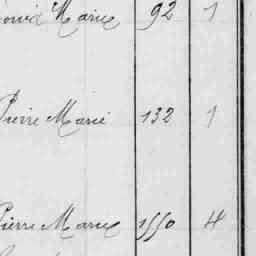 Louis Marie 92 1
Pierre Marie 132 1
Pierre Marie 1550 4